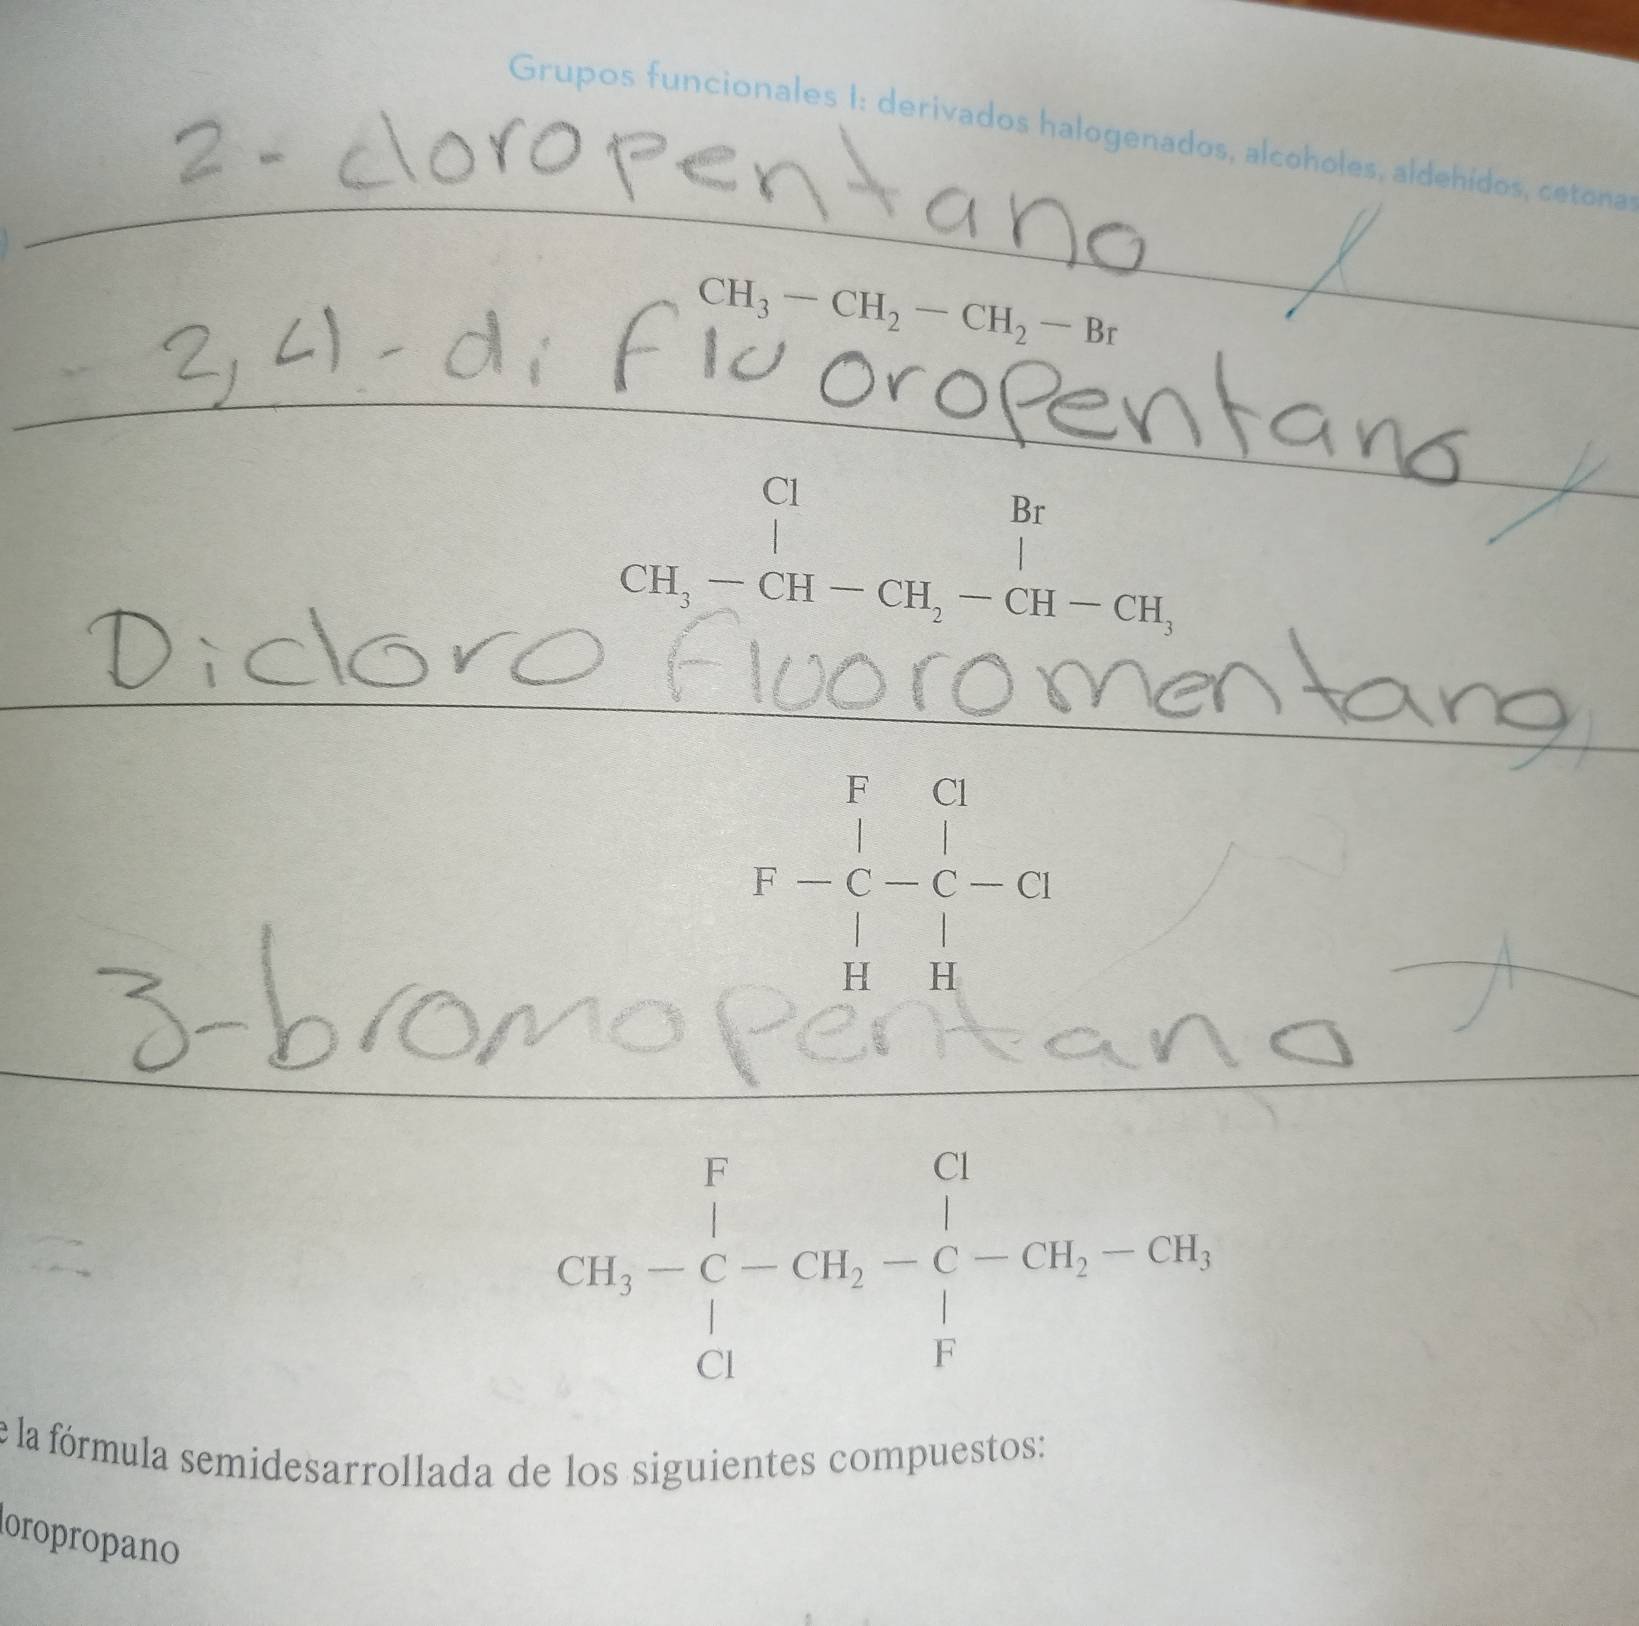 Grupos funcionales I: derivados halogenados, alcoholes, aldehídos, cetonas
2-cloropentano
CH₃ — CH₂ — CH₂ — Br
2,4-difluoropentano
Cl Br
| |
CH₃ — CH — CH₂ — CH — CH₃
Diclorofluoromentano
F Cl
| |
F — C — C — Cl
| |
H H
3-bromopentano
F Cl
| |
CH₃ — C — CH₂ — C — CH₂ — CH₃
| |
Cl F
la fórmula semidesarrollada de los siguientes compuestos:
loropropano